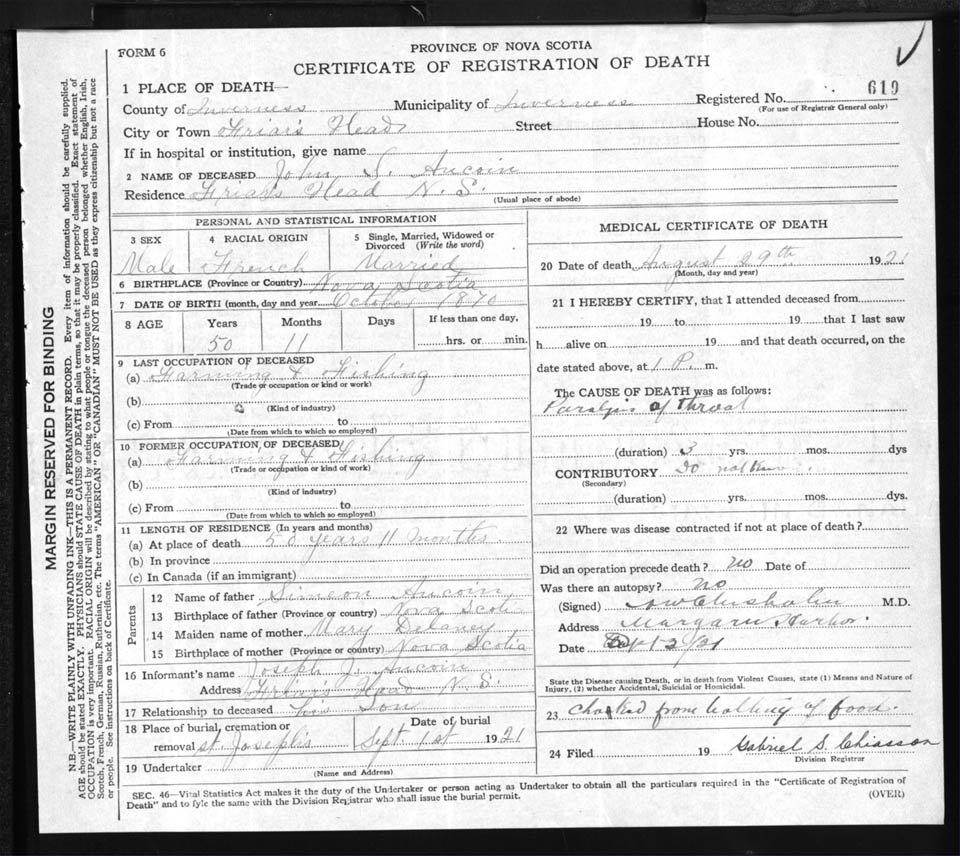 FORM 6
PROVINCE OF NOVA SCOTIA
CERTIFICATE OF REGISTRATION OF DEATH
1 PLACE OF DEATH—
County of Inverness Municipality of Inverness Registered No. 619
(For use of Registrar General only)
City or Town Friar's Head Street House No.
If in hospital or institution, give name
2 NAME OF DECEASED John S. Aucoin
Residence Friar's Head N. S.
(Usual place of abode)
PERSONAL AND STATISTICAL INFORMATION
3 SEX 4 RACIAL ORIGIN 5 Single, Married, Widowed or Divorced (Write the word)
Male French Married
6 BIRTHPLACE (Province or Country) Nova Scotia
7 DATE OF BIRTH (month, day and year) October 1870
8 AGE Years Months Days If less than one day,
50 11 hrs. or min.
9 LAST OCCUPATION OF DECEASED
(a) Farming & Fishing
(Trade or occupation or kind or work)
(b)
(Kind of industry)
(c) From to
(Date from which to which so employed)
10 FORMER OCCUPATION OF DECEASED
(a) Farming & Fishing
(Trade or occupation or kind of work)
(b)
(Kind of industry)
(c) From to
(Date from which to which so employed)
11 LENGTH OF RESIDENCE (In years and months)
(a) At place of death 50 years 11 months.
(b) In province
(c) In Canada (if an immigrant)
Parents
12 Name of father Simeon Aucoin
13 Birthplace of father (Province or country) Nova Scotia
14 Maiden name of mother Mary Delaney
15 Birthplace of mother (Province or country) Nova Scotia
16 Informant's name Joseph J. Aucoin
Address Friar's Head N. S.
17 Relationship to deceased his Son
18 Place of burial, cremation or removal St. Joseph's Date of burial Sept. 1st 1921
19 Undertaker
(Name and Address)
MEDICAL CERTIFICATE OF DEATH
20 Date of death August 29th 1921
(Month, day and year)
21 I HEREBY CERTIFY, that I attended deceased from
19 to 19 that I last saw
h alive on 19 and that death occurred, on the
date stated above, at 1 P. m.
The CAUSE OF DEATH was as follows:
Paralysis of throat
(duration) 3 yrs. mos. dys
CONTRIBUTORY Do not know
(Secondary)
(duration) yrs. mos. dys.
22 Where was disease contracted if not at place of death?
Did an operation precede death? no Date of
Was there an autopsy? no
(Signed) M.D.
Address Margaree Harbor.
Date
State the Disease causing Death, or in death from Violent Causes, state (1) Means and Nature of
Injury, (2) whether Accidental, Suicidal or Homicidal.
23 Choked from of food.
24 Filed 19 Gabriel S. Chiasson
Division Registrar
SEC. 46—Vital Statistics Act makes it the duty of the Undertaker or person acting as Undertaker to obtain all the particulars required in the "Certificate of Registration of
Death" and to fyle the same with the Division Registrar who shall issue the burial permit.
(OVER)
MARGIN RESERVED FOR BINDING
N.B.—WRITE PLAINLY WITH UNFADING INK—THIS IS A PERMANENT RECORD. Every item of information should be carefully supplied.
AGE should be stated EXACTLY. PHYSICIANS should STATE CAUSE OF DEATH in plain terms, so that it may be properly classified. Exact statement of
OCCUPATION is very important. RACIAL ORIGIN will be described by stating to what people or tongue the deceased person belonged whether English, Irish,
Scotch, French, German, Russian, Ruthenian, etc. The terms "AMERICAN" OR "CANADIAN" MUST NOT BE USED as they express citizenship but not a race
or people. See instructions on back of Certificate.